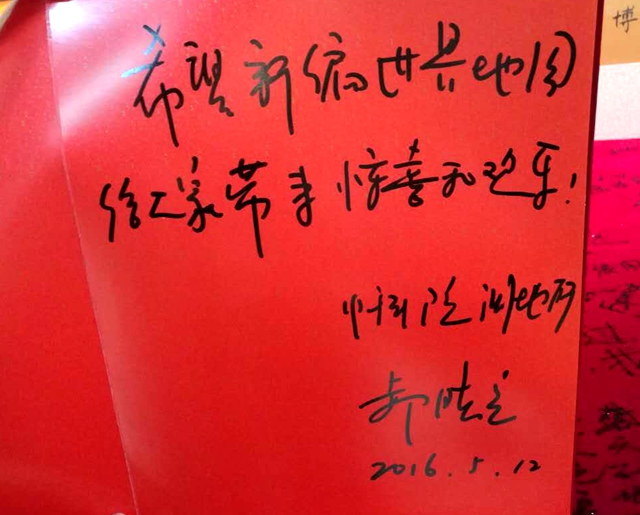 希望新编世界地图
给大家带来惊喜和欢乐！
中科院测地所
郝晓光
2016.5.12
博